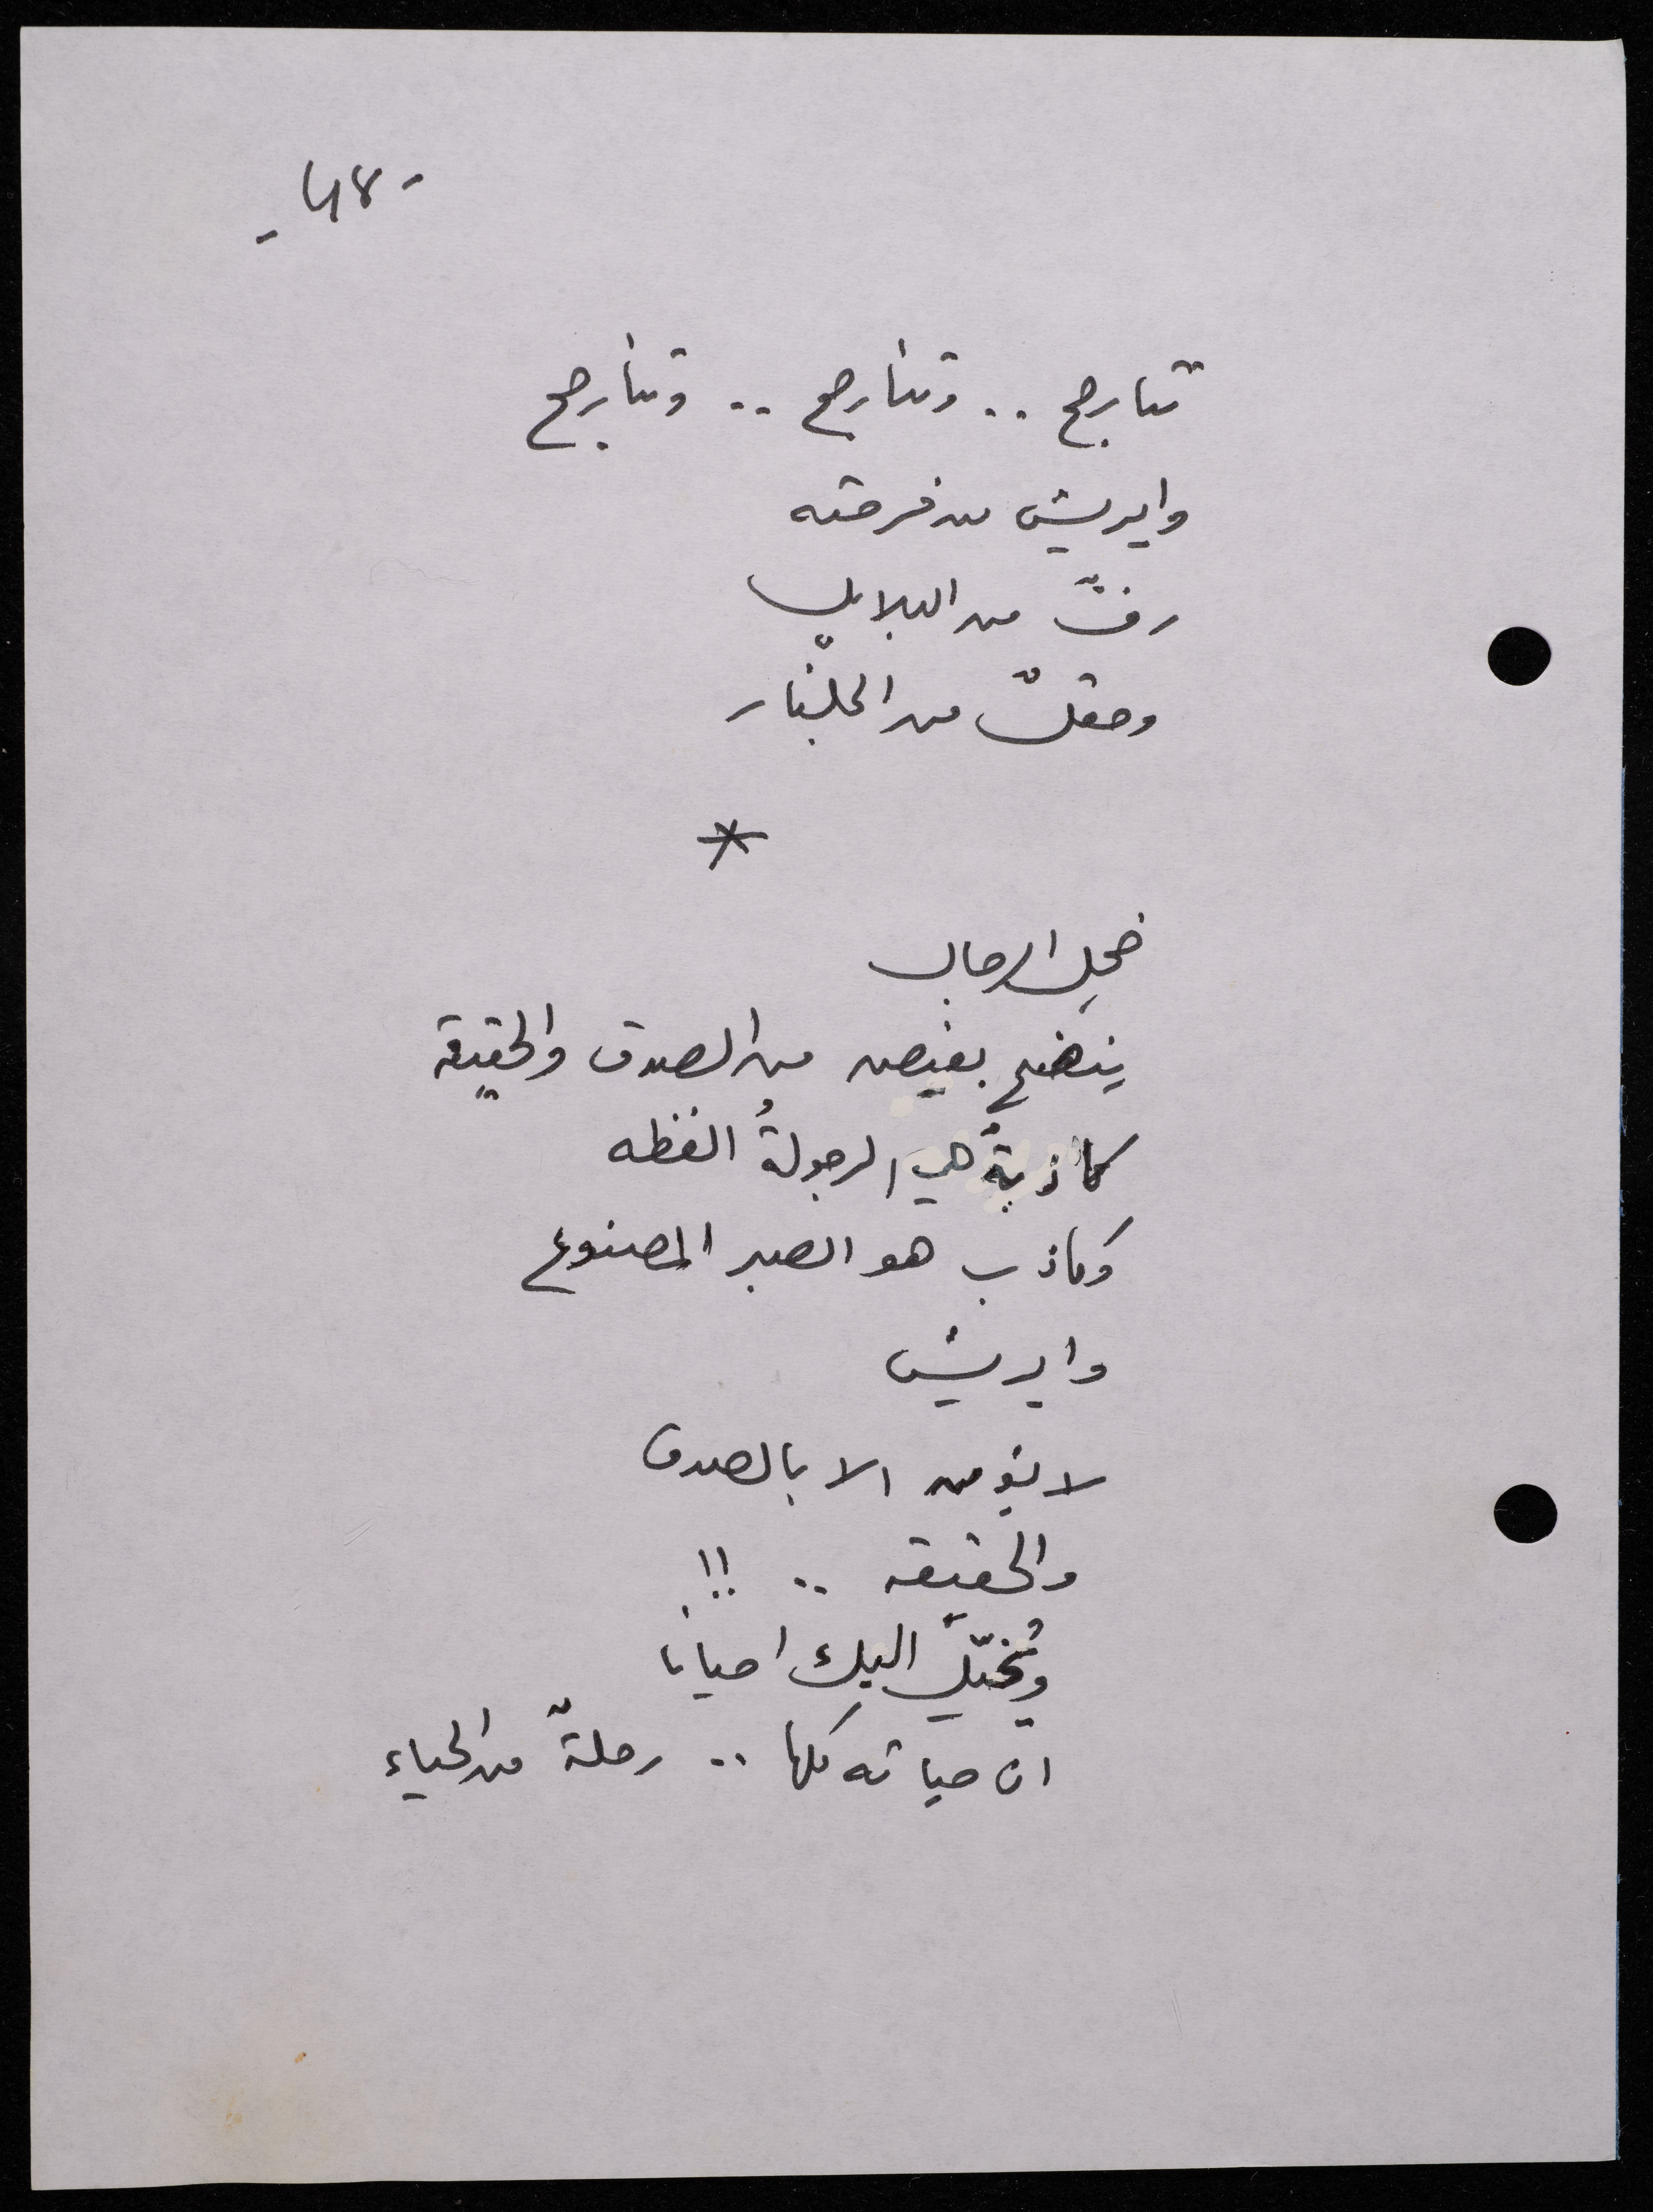 - ٤٨ -
تتارجح .. وتتأرجح .. وتتأرجح
وايريش من فرحته
رفٌّ من البلابل
وحقلٌ من الجلّنار
*
خجل الرجال
ينضح بفيض من الصدق والحقيقة
كاذبةٌ هي الرجولةُ الفظه
وكاذب هو الصبر المصنوع
وايريش
لا يؤمن الا بالصدق
والحقيقه .. !!
ويُخيّل اليك احيانا
ان حياته كلها .. رحلةٌ من الحياء